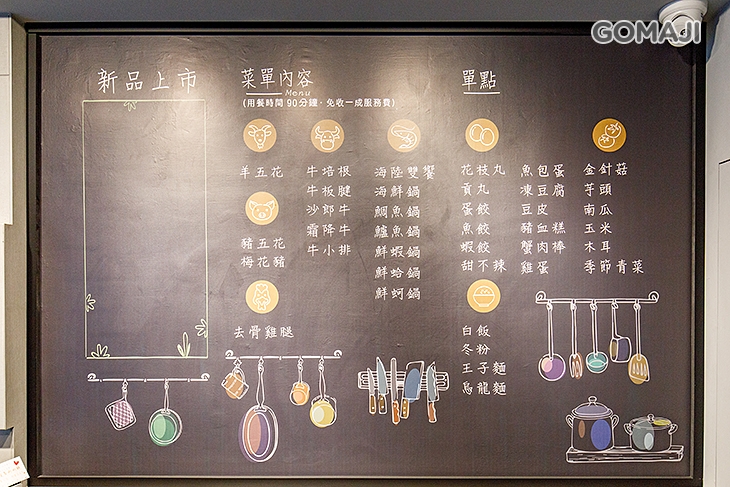 GOMAJI
新品上市
菜單內容
Menu
(用餐時間 90分鐘，免收一成服務費)
羊五花
豬五花
梅花豬
去骨雞腿
牛培根
牛板腱
沙郎牛
霜降牛
牛小排
海陸雙饗
海鮮鍋
鯛魚鍋
鱸魚鍋
鮮蝦鍋
鮮蛤鍋
鮮蚵鍋
單點
花枝丸
貢丸
蛋餃
魚餃
蝦餃
甜不辣
白飯
冬粉
王子麵
烏龍麵
魚包蛋
凍豆腐
豆皮
豬血糕
蟹肉棒
雞蛋
金針菇
芋頭
南瓜
玉米
木耳
季節青菜